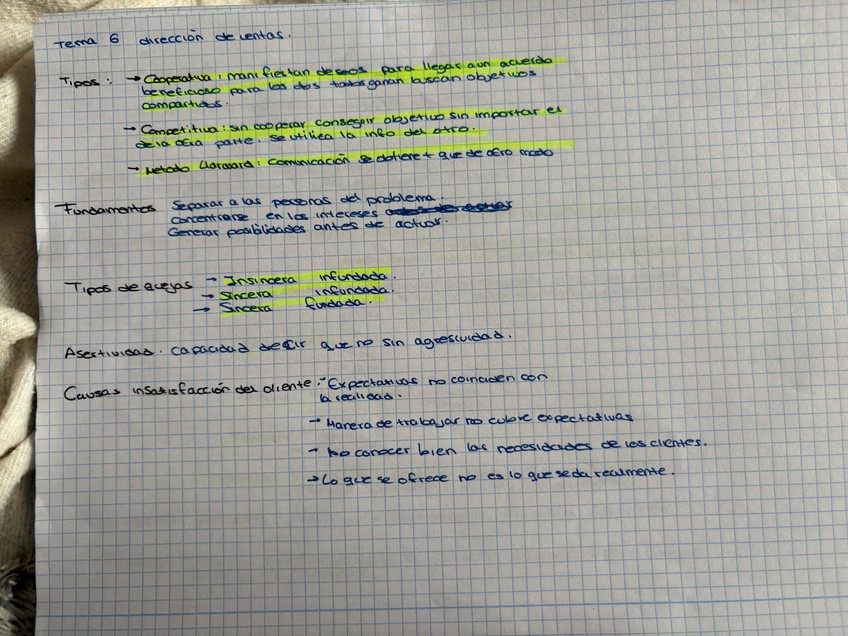 Tema 6 dirección de ventas.
Tipos: → Cooperativa: manifiestan deseos para llegar a un acuerdo
beneficioso para los dos todos ganan buscan objetivos
compartidos.
→ Competitiva: sin cooperar conseguir objetivo sin importar el
de la otra parte. se utiliza la info del otro.
→ Metodo Harvard: comunicación se obtiene + que de otro modo
Fundamentos Separar a las personas del problema.
concentrarse en los intereses
Generar posibilidades antes de actuar.
Tipos de quejas → Insincera infundada.
→ Sincera infundada.
→ Sincera fundada.
Asertividad. capacidad decir que no sin agresividad.
Causas insatisfacción del cliente: Expectativas no coinciden con
la realidad.
→ Manera de trabajar no cubre expectativas
→ No conocer bien las necesidades de los clientes.
→ Lo que se ofrece no es lo que se da realmente.